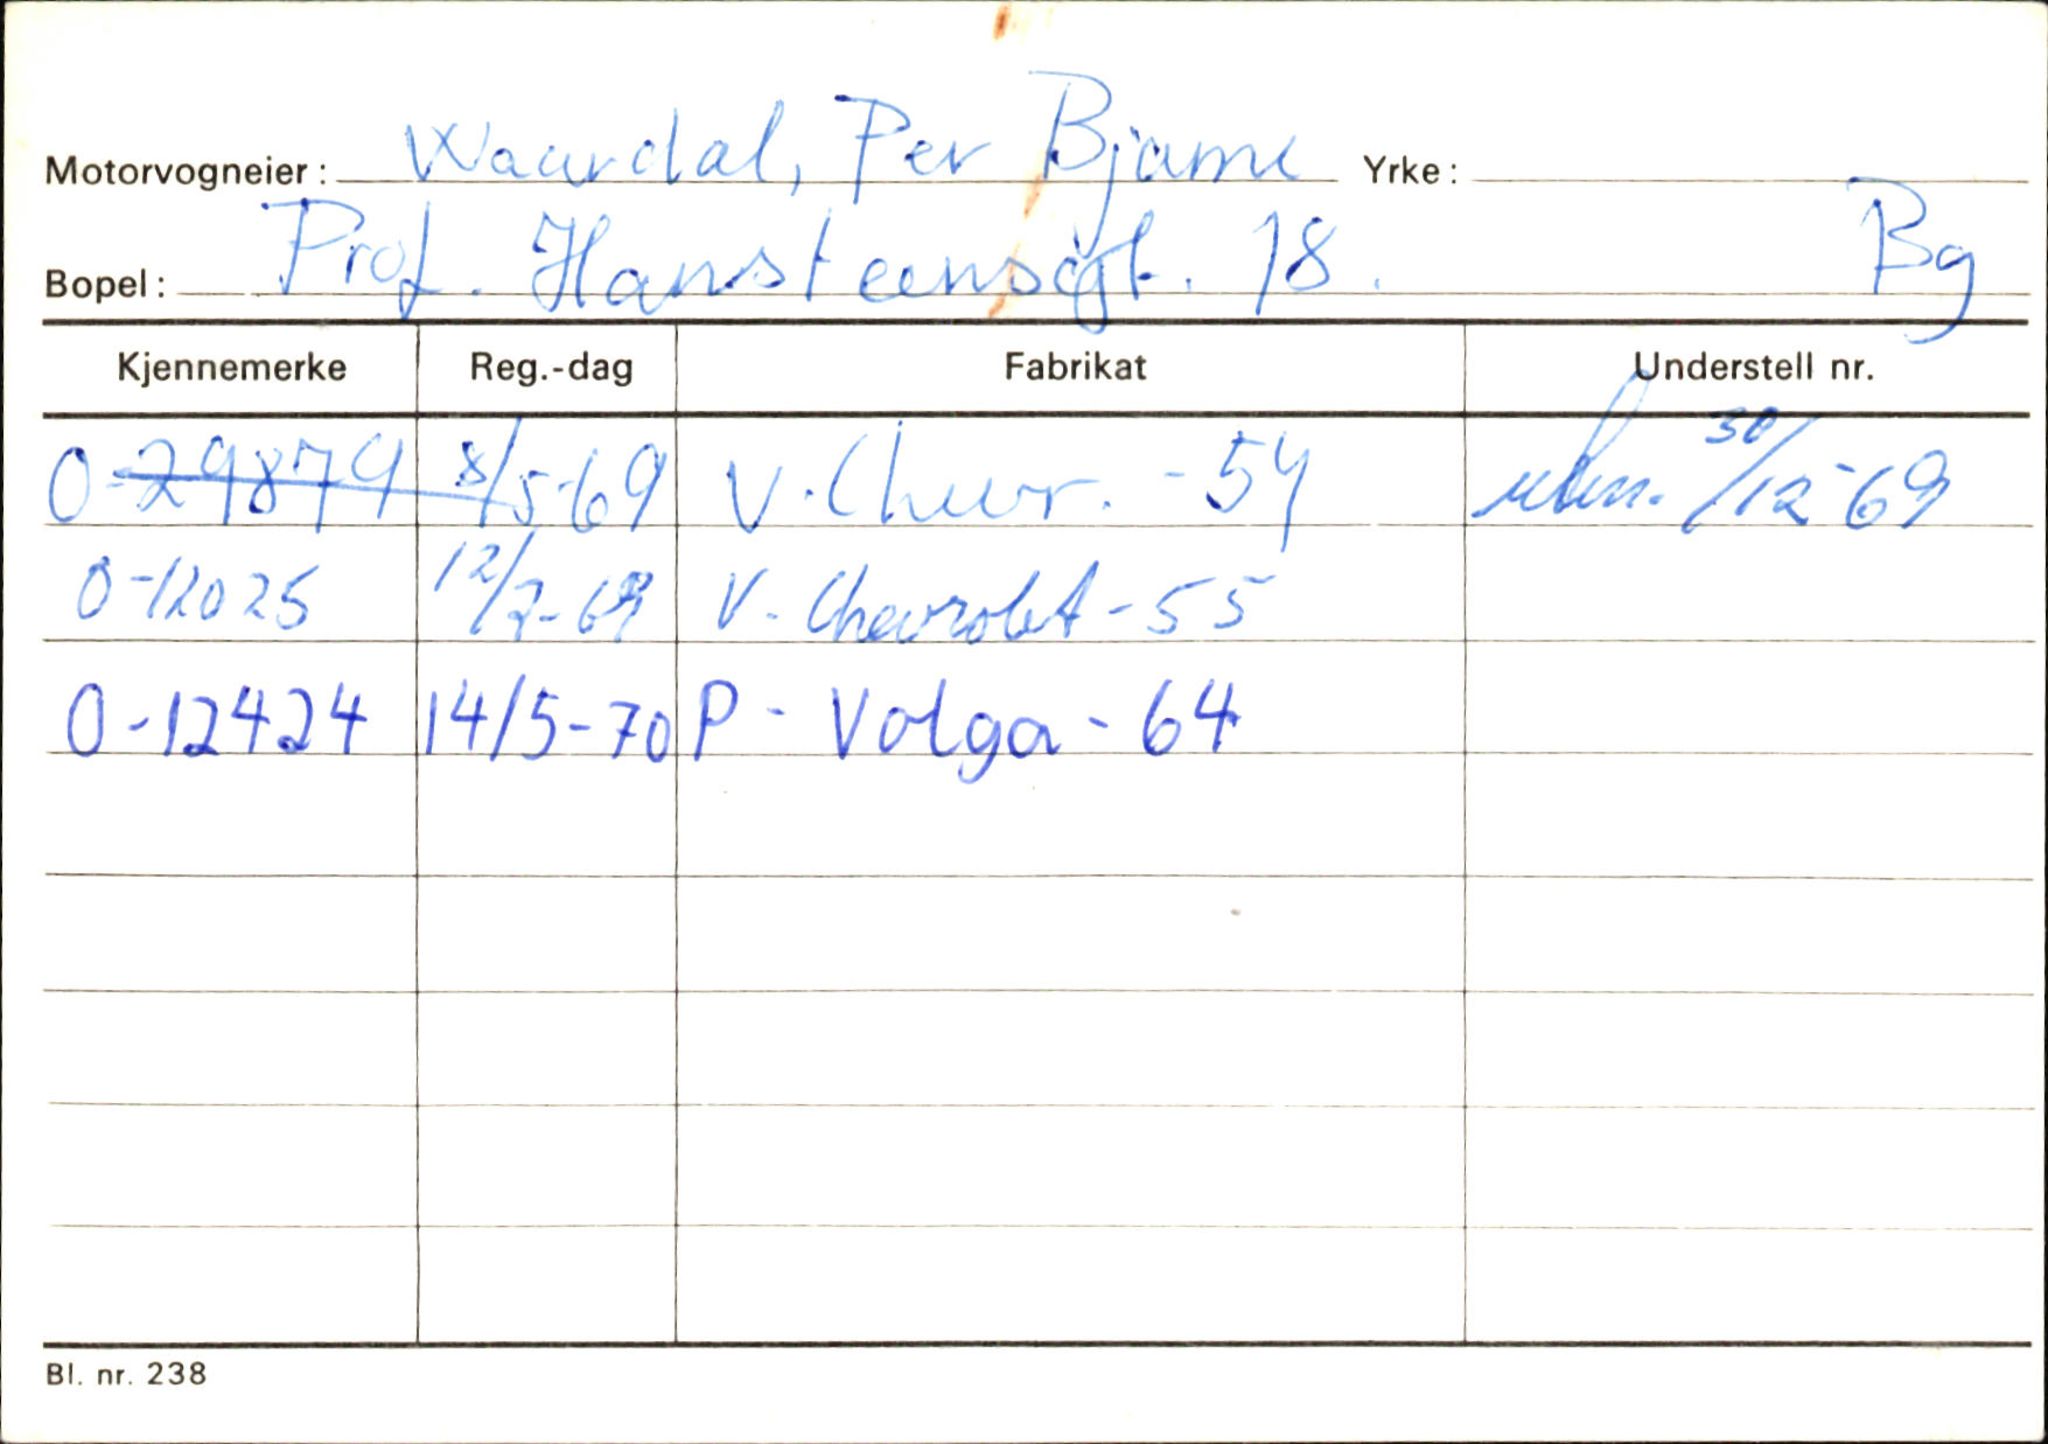 Motorvogneier: Waardal, Per Bjarne Yrke:
Bopel: Prof. Hansteensgt. 18. Bg
Kjennemerke Reg.-dag Fabrikat Understell nr.
O-29879 8/5-69 V. Chevr. -54 30/12-69
O-12025 12/7-69 V. Chevrolet-55
O-12424 14/5-70 P - Volga - 64
Bl. nr. 238